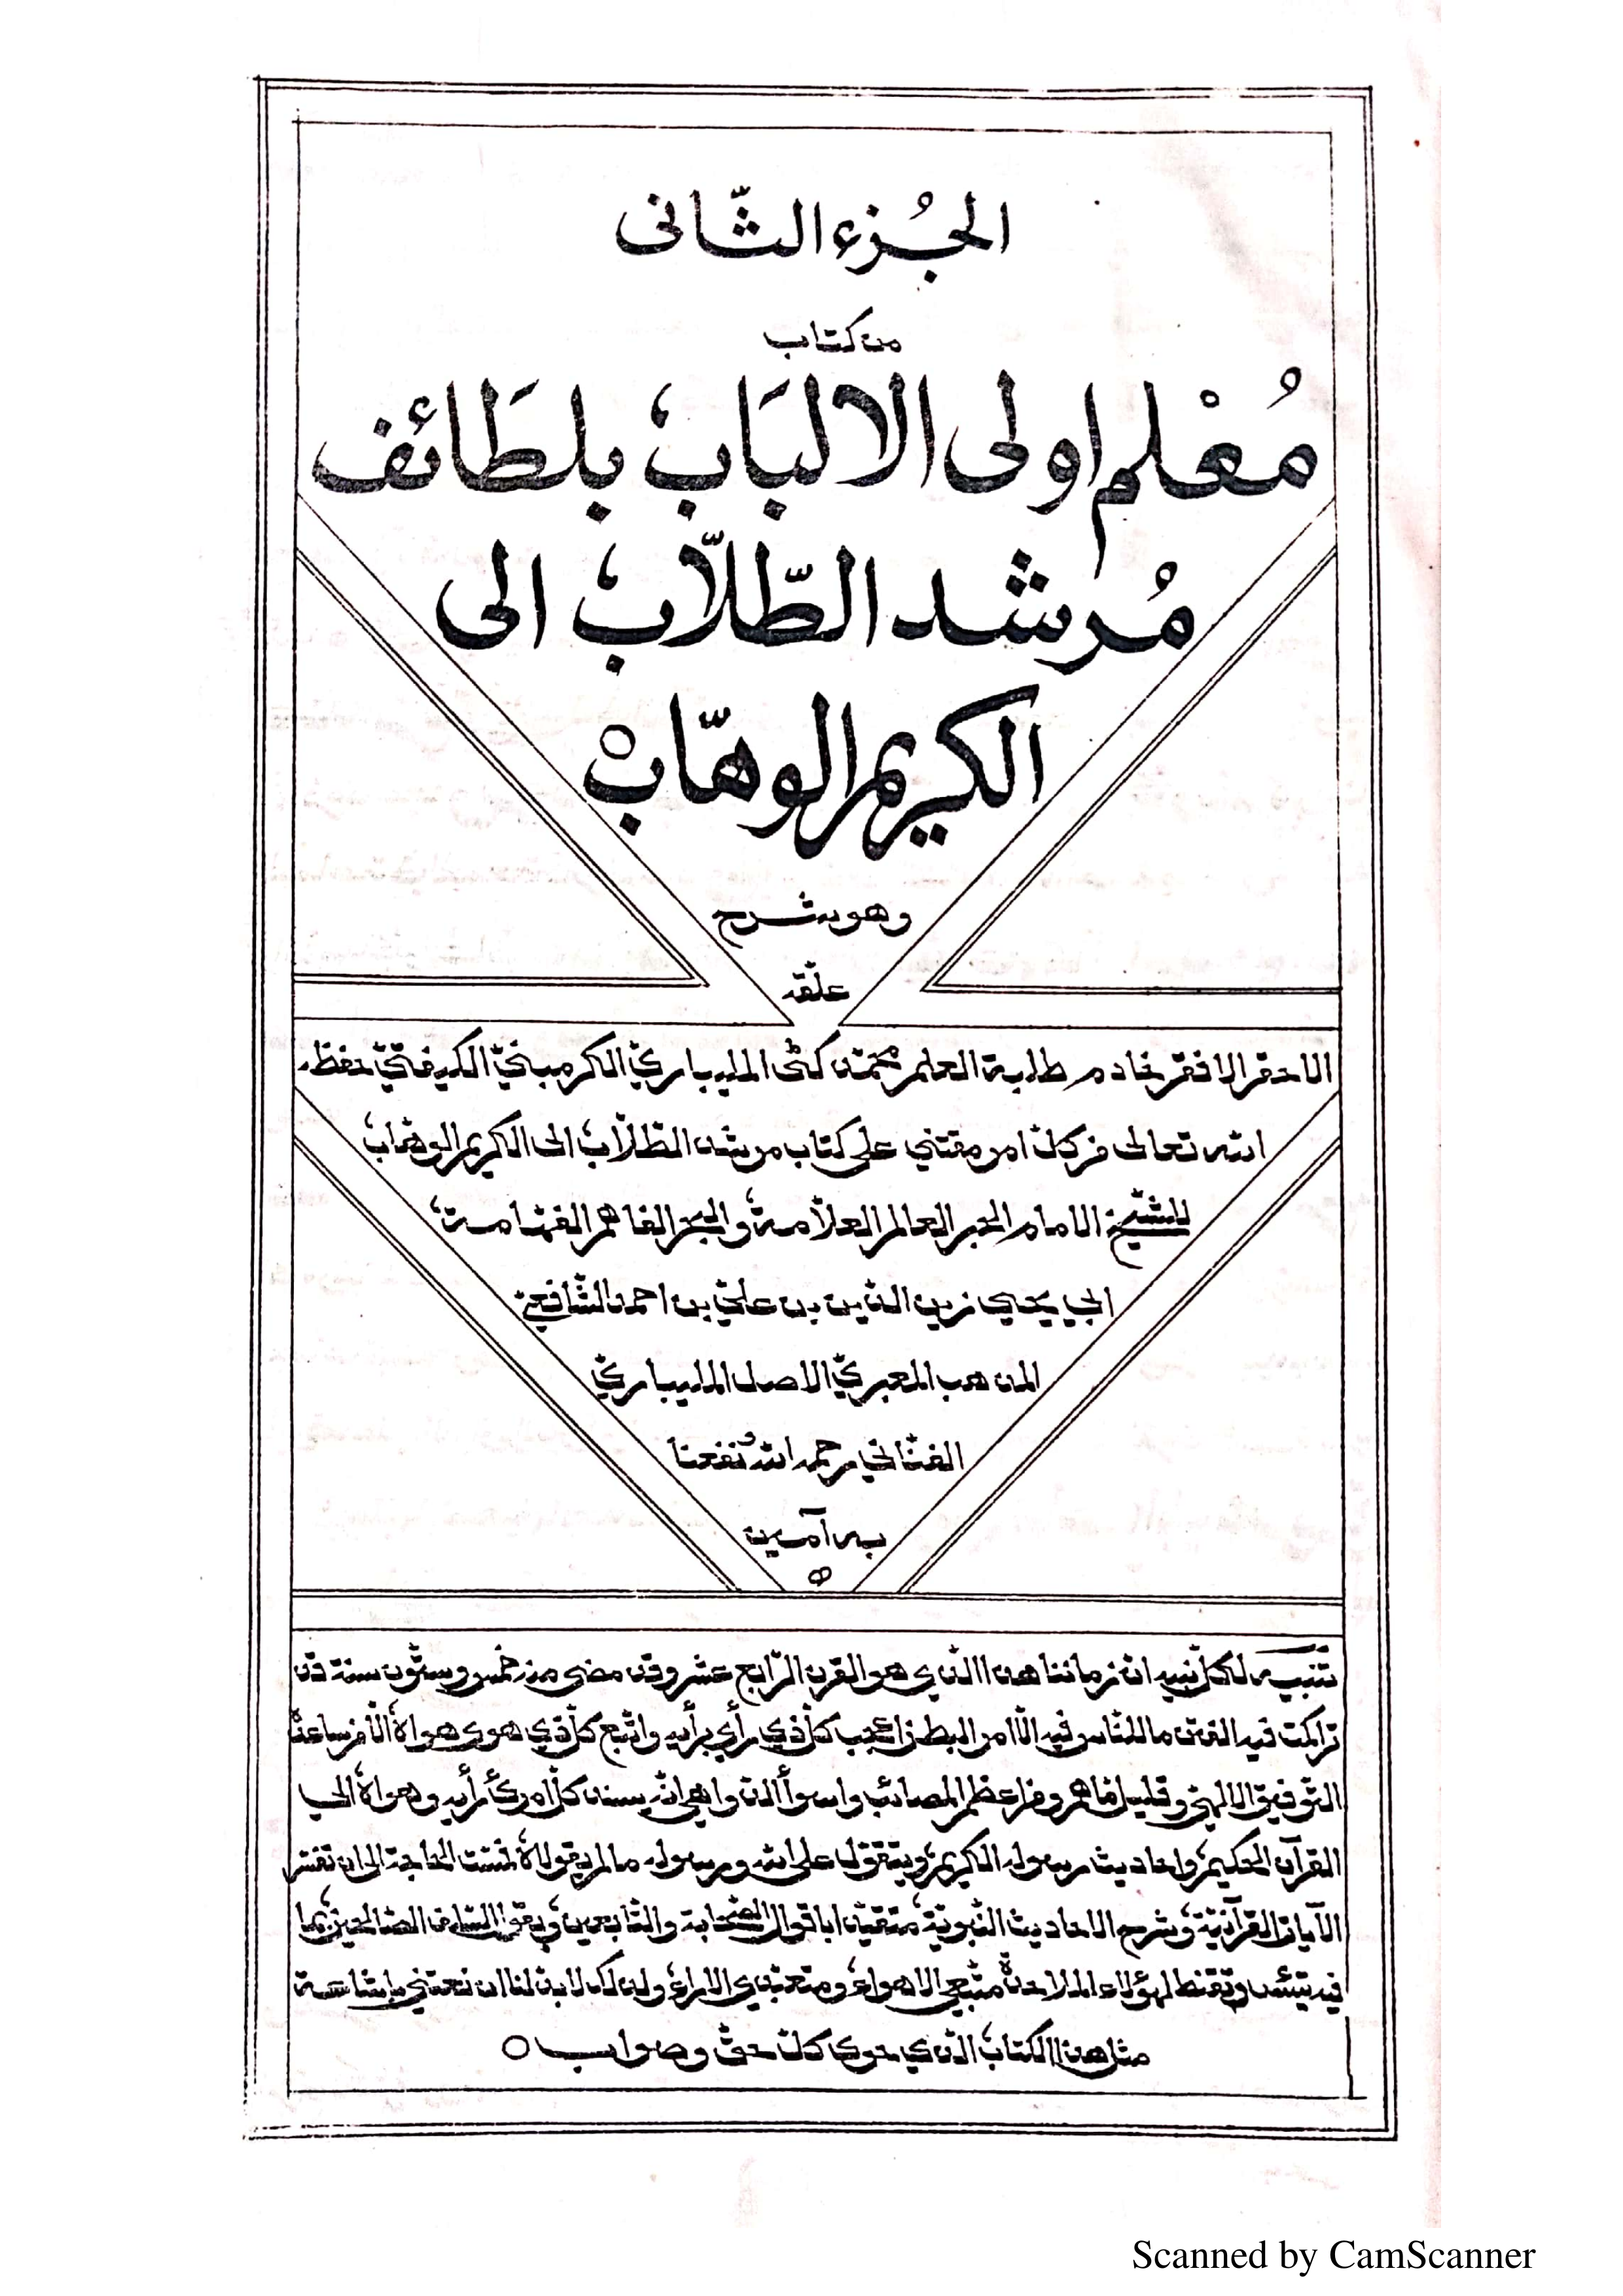 الجُزء الثّانى
من كتاب
مُعْلم اولى الالبَاب، بلطَائف
مُرشد الطّلاّب، الى
الكريم الوهّاب
وهو شرح
علّقه
الاحقر الافقر خادم طلبة العلم محمّد كٹى المليباريّ الكرمبنيّ الكيفتّيّ حفظه
الله تعالى من كلّ امر مفتني على كتاب مرشد الطّلاّب، الى الكريم الوهّاب،
للشّيخ الامام الحبر العالم العلاّمة، والبحر الفاهم الفهّامة،
ابي يحيى زين الدّين بن عليّ بن احمد الشّافعيّ
المذهب المعبريّ الاصل المليباريّ
الفنّاني رحمه الله ونفعنا
به آمين
تنبيه لكلّ نبيه انّ زماننا هذا الذي هو القرن الرّابع عشر وقد مضى منه خمس وستّون سنة قد
تراكمت فيه الفتن ما للنّاس فيه الاّ امر البطن اعجب كلّ ذي رأي برأيه واتّبع كلّ ذي هوى هواه، الاّ من ساعده
التّوفيق الالهيّ وقليل ما هم ومن اعظم المصائب واسوأ الدّواهي انّه يسند كلّ امرئ رأيه وهواه، الى
القرآن الحكيم، واحاديث رسوله الكريم، ويتقوّل على الله ورسوله ما لم يقولاه، فمسّت الحاجة الى ان تفسّر
الآيات القرآنيّة، وتشرح الاحاديث النّبويّة، متقيّدا باقوال الصّحابة والتّابعين، السّلف الصّالحين، بما
فيه لهؤلاء الملاحدة متّبعي الاهواء، الاراء، ولذلك لا بدّ لنا ان نعتني باشاعة
مثل هذا الكتاب، الذي حوى كلّ حقّ وصواب
Scanned by CamScanner